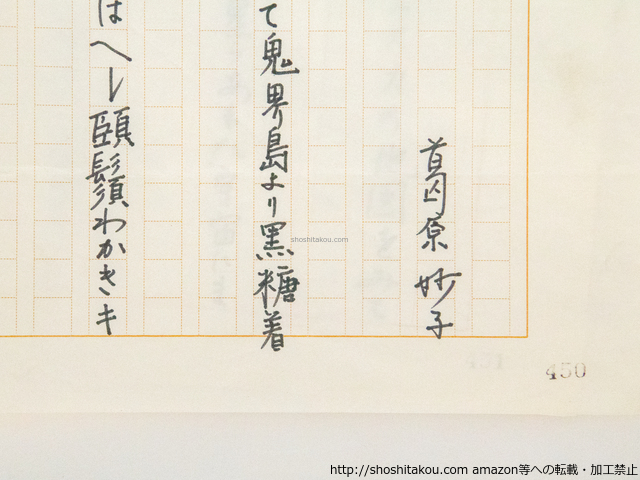 葛原妙子
て鬼界島より黑糖着
はへし頤鬚わかきキ
shoshitakou.com
450
http://shoshitakou.com amazon等への転載・加工禁止